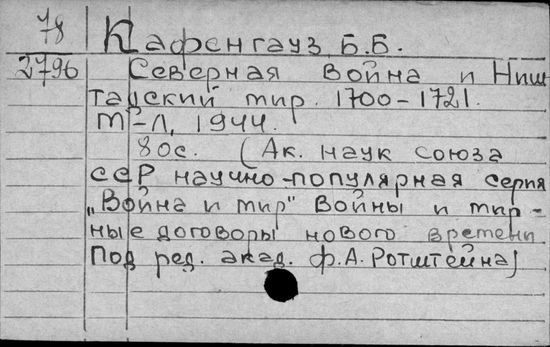 78 Кафенгауз Б.Б.
2796 Северная война и Ниш
тадский мир. 1700-1721.
М-Л, 1944.
80с. (Ак. наук союза
ССР научно-популярная серия
„Война и мир" Войны и мир-
ные договоры нового времени
Под ред. акад. Ф.А. Ротштейна)